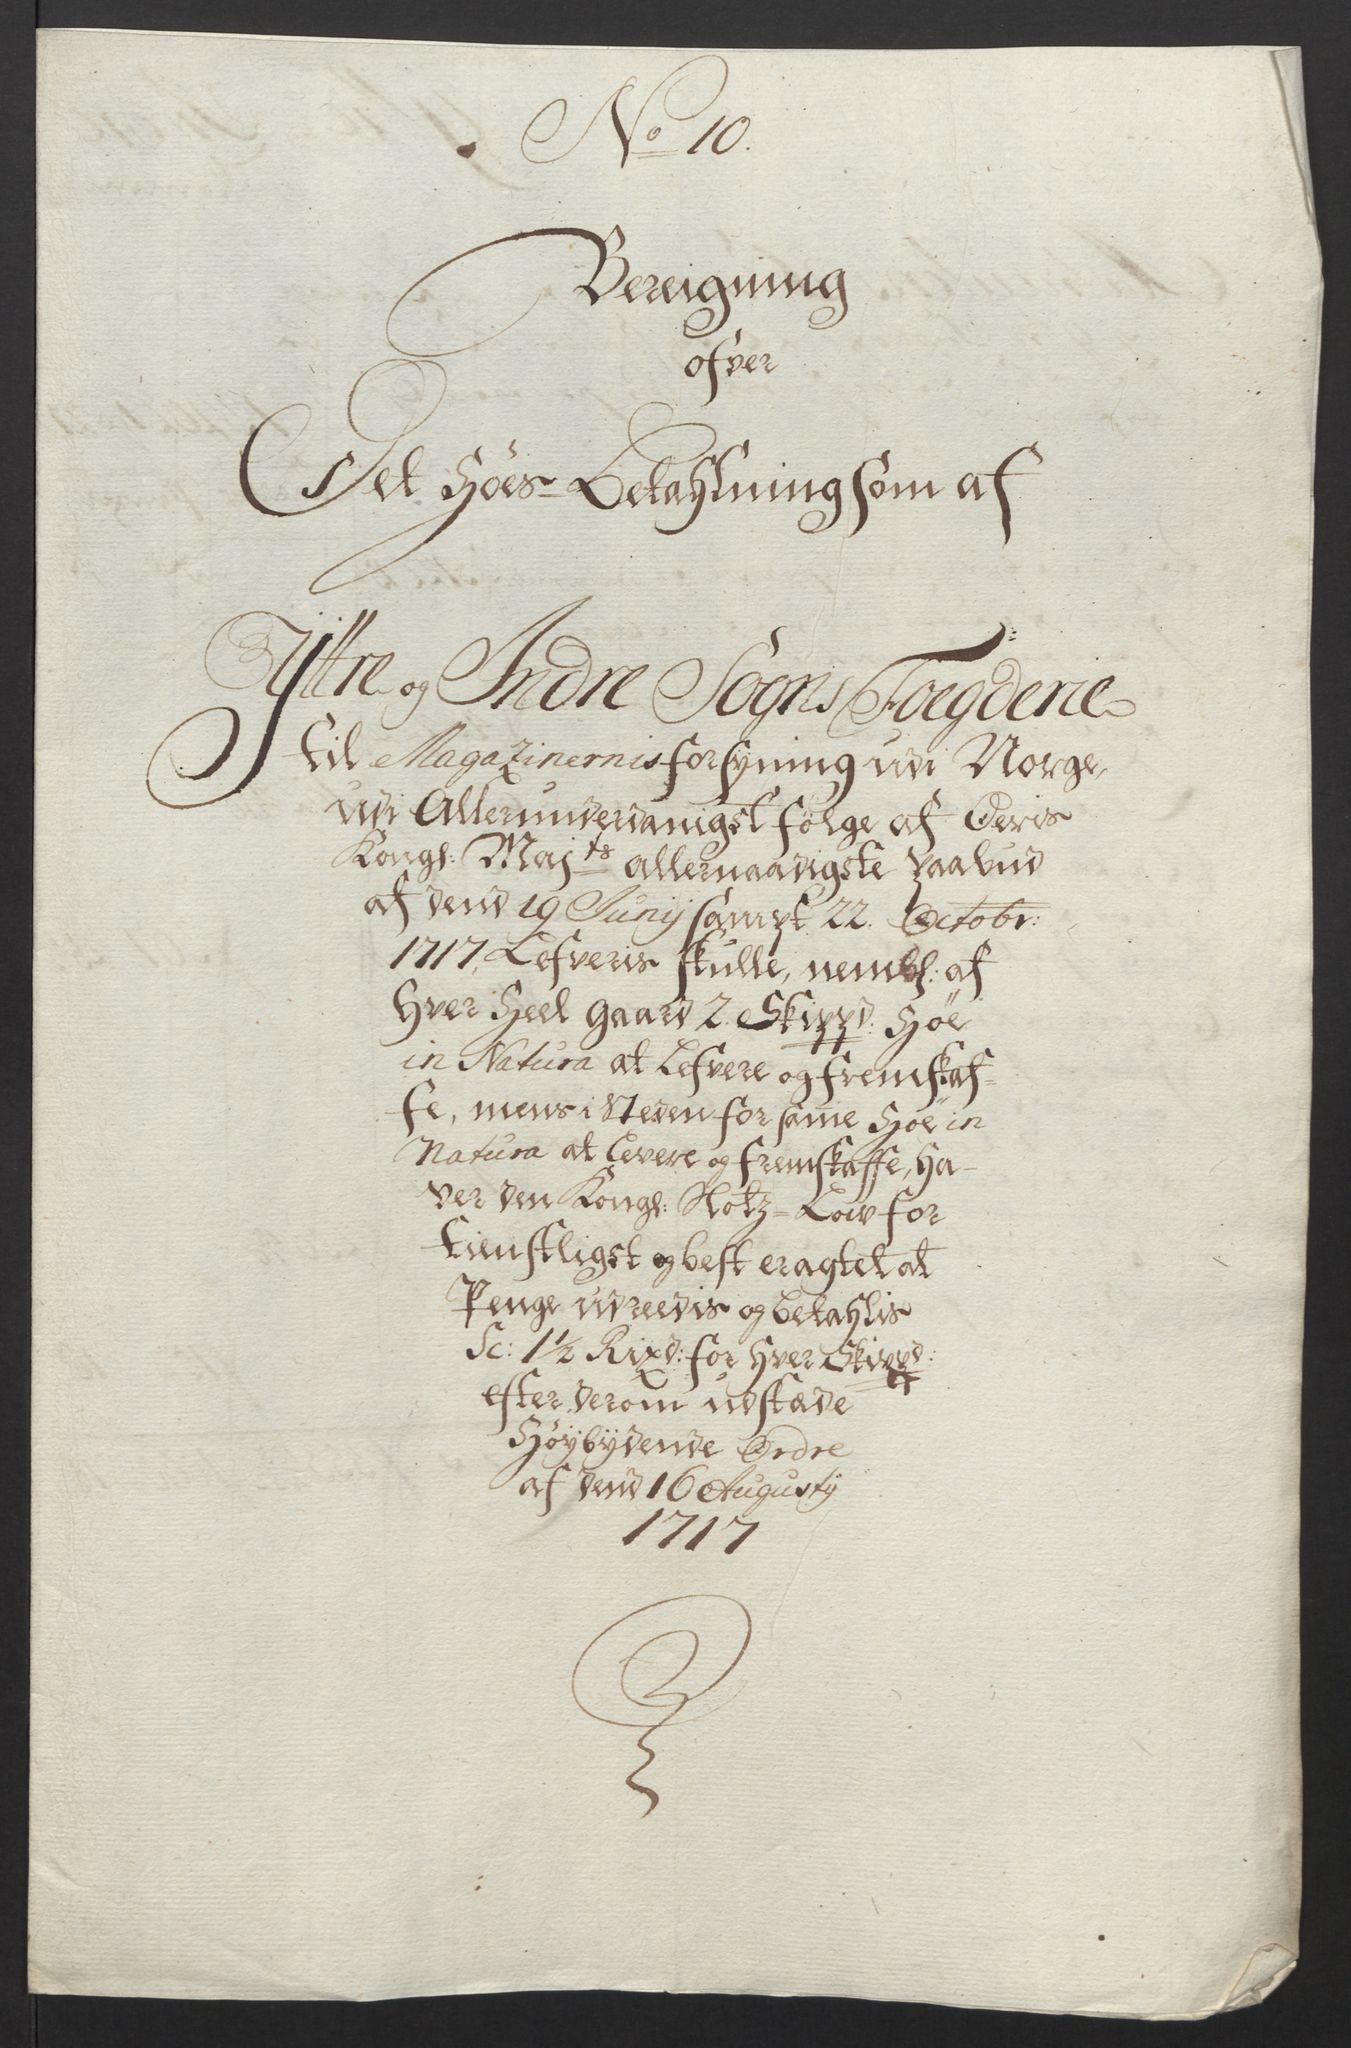 No 10.
Bereigning
ofver
Det Höes- Betahlning som af
Yttre og Indre Sogns Foegderie
til Magazinernis forsyning udi Norge,
udi Allerunderdanigst følge af Deris
Kongl: Majts allernaadigste paabud
af dend 19 Junij sampt 22. Octobr:
1717, Lefveris skulle, nembl: af
hver Heel gaard 2. Skippd: Høe
in Natura at Lefvere og fremskaf-
fe, mens i steden for same Høe in
Natura at levere og fremskaffe, ha-
ver den Kongl: Slotz-Low for
tienstligst og best eragtet at
Penge udreedis og betahlis
Sc: 1½ Rixd: for hver Skippd:
efter derom udstæde
Høybydende Ordre
af dend 16 Augusty
1717